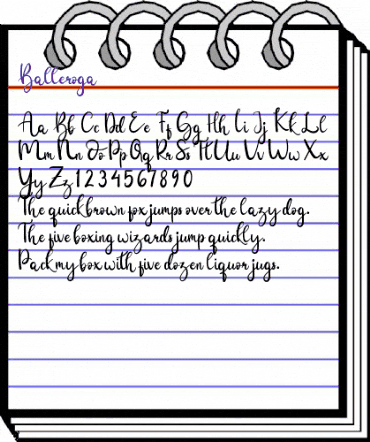 Balleroga
Aa Bb Cc Dd Ee Ff Gg Hh Ii Jj Kk Ll
Mm Nn Oo Pp Qq Rr Ss Tt Uu Vv Ww Xx
Yy Zz 1 2 3 4 5 6 7 8 9 0
The quick brown fox jumps over the lazy dog.
The five boxing wizards jump quickly.
Pack my box with five dozen liquor jugs.